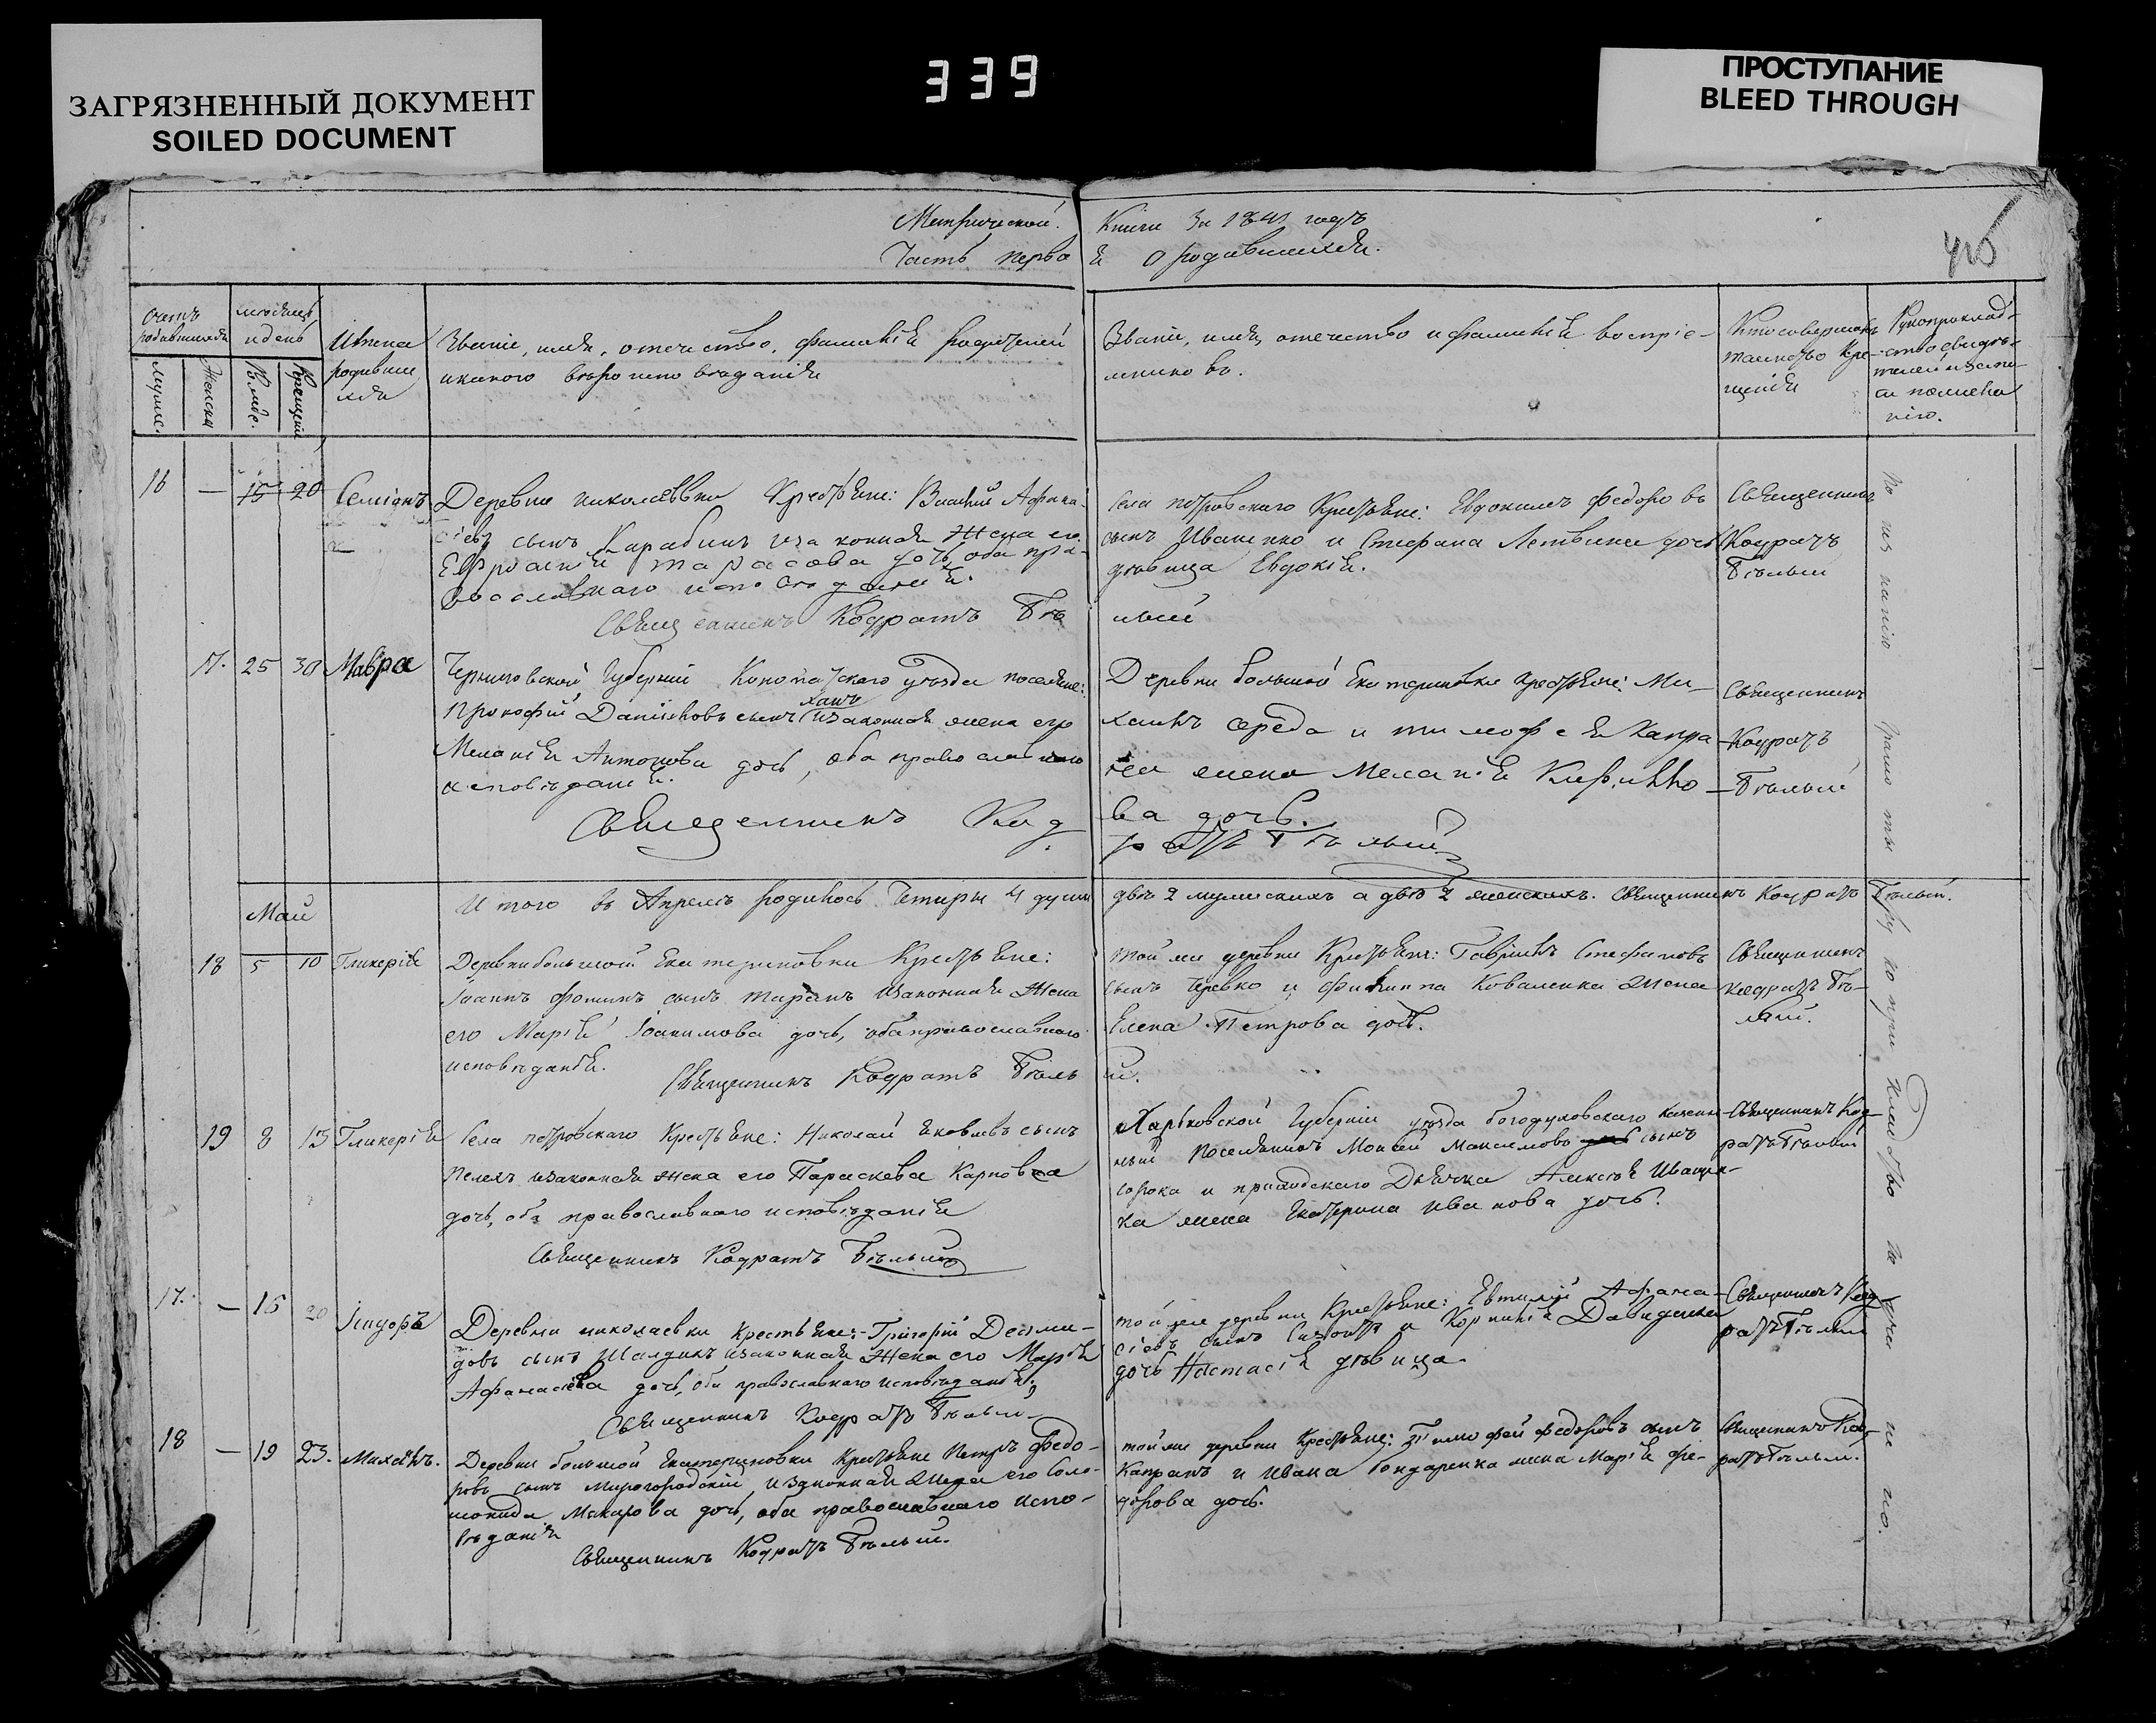 ЗАГРЯЗНЕННЫЙ ДОКУМЕНТ
SOILED DOCUMENT
339
ПРОСТУПАНИЕ
BLEED THROUGH
Метрической Книги За 1841 годъ
Часть перва я о родившихся.
Счетъ родившихся
Мужес.
Женска
месяцъ и день
Рожде.
Крещенія
Имена родивши хся
Званіе, имя, отечество, фамилія родителей
и какого вероисповеданія
Званіе, имя, отечество и фамилія воспріе-
мнико въ.
Кто совершалъ таинство Кре-
щенія
Рукоприклад-
ство свидѣ-
телей
16 — 15 20 Семіонъ
Деревни николаевки Крестьяне: Василій Афана-
сіевъ сынъ Карабинъ и законная Жена его
Ефросинія тарасова дочь, оба пра-
вославнаго исповѣданія.
Священникъ Кодратъ Бѣ лый
Села петровскаго Крестьяне: Евдокимъ Федоро въ
сынъ Иваненко и Стефана дочь
дѣвица Евдокія.
Священникъ
Кодратъ
Бѣлый
17. 25 30 Мавра
Черниговской Губерніи Конотопскаго уѣзда поселяне:
Прокофій Даниловъ сынъ и законная жена его
Меланія Антонова дочь, оба православнаго
исповѣданія.
Священникъ Код ратъ Бѣлый
Деревни большой Екатериновки крестьяне: Ми-
хаилъ середа и тимофея Капра-
на жена Меланія
ва дочь.
Священникъ
Кодратъ
Бѣлый
И того въ Апрелѣ родилось Четыри 4 души двѣ 2 мужескихъ а двѣ 2 женскихъ. Священникъ Кодратъ Бѣлый.
Май
18 5 10 Гликерія
Деревни большой Екатериновки Крестьяне:
Іоаннъ фоминъ сынъ таранъ и законная Жена
его Марія Іоакимова дочь, оба православнаго
исповѣданія.
Священникъ Кодратъ Бѣлы й.
той же деревни Крестьяне: Гавріилъ Стефановъ
сынъ Черевко и филиппа Коваленка Жена
Елена Петрова дочь.
Священникъ
Кодратъ Бѣ-
лый.
19 8 13 Гликерія
Села петровскаго Крестьяне: Николай Яковлевъ сынъ
Пелехъ и законная Жена его Параскева Карповa
дочь, оба православнаго исповѣданія
Священникъ Кодратъ Бѣлый
Харьковской Губерніи уѣзда богодуховскаго казен-
ный Поселянинъ Моисей Максимовъ сынъ
сорока и приходскаго Дьячка Алексѣя Иващен-
ка жена Екатерина Иванова дочь.
Священникъ Код-
ратъ Бѣлый
17. — 15 20 Ісидоръ
Деревни николаевки крестьяне: Григорій Деоми-
довъ сынъ Шалдинъ и законная Жена его Марія
Афанасіева дочь, оба православнаго исповѣданія,
Священникъ Кодратъ Бѣлый
той же деревни Крестьяне: Евтихій Афана-
сіевъ сынъ и Корнилія Давиденка
дочь Настасія дѣвица.
Священникъ Код
ратъ Бѣлый
18 — 19 23. Михаилъ.
Деревни большой Екатериновки Крестьяне Петръ Федо-
ровъ сынъ Миргородскій, и законная Жена его Соло-
монида Макарова дочь, оба православнаго испо-
вѣданія
Священникъ Кодратъ Бѣлый.
той же деревни Крестьяне: Тимофей федоровъ сынъ
Капранъ и Ивана бондаренка жена Марія фе-
дорова дочь.
Священникъ Код
ратъ Бѣлый.